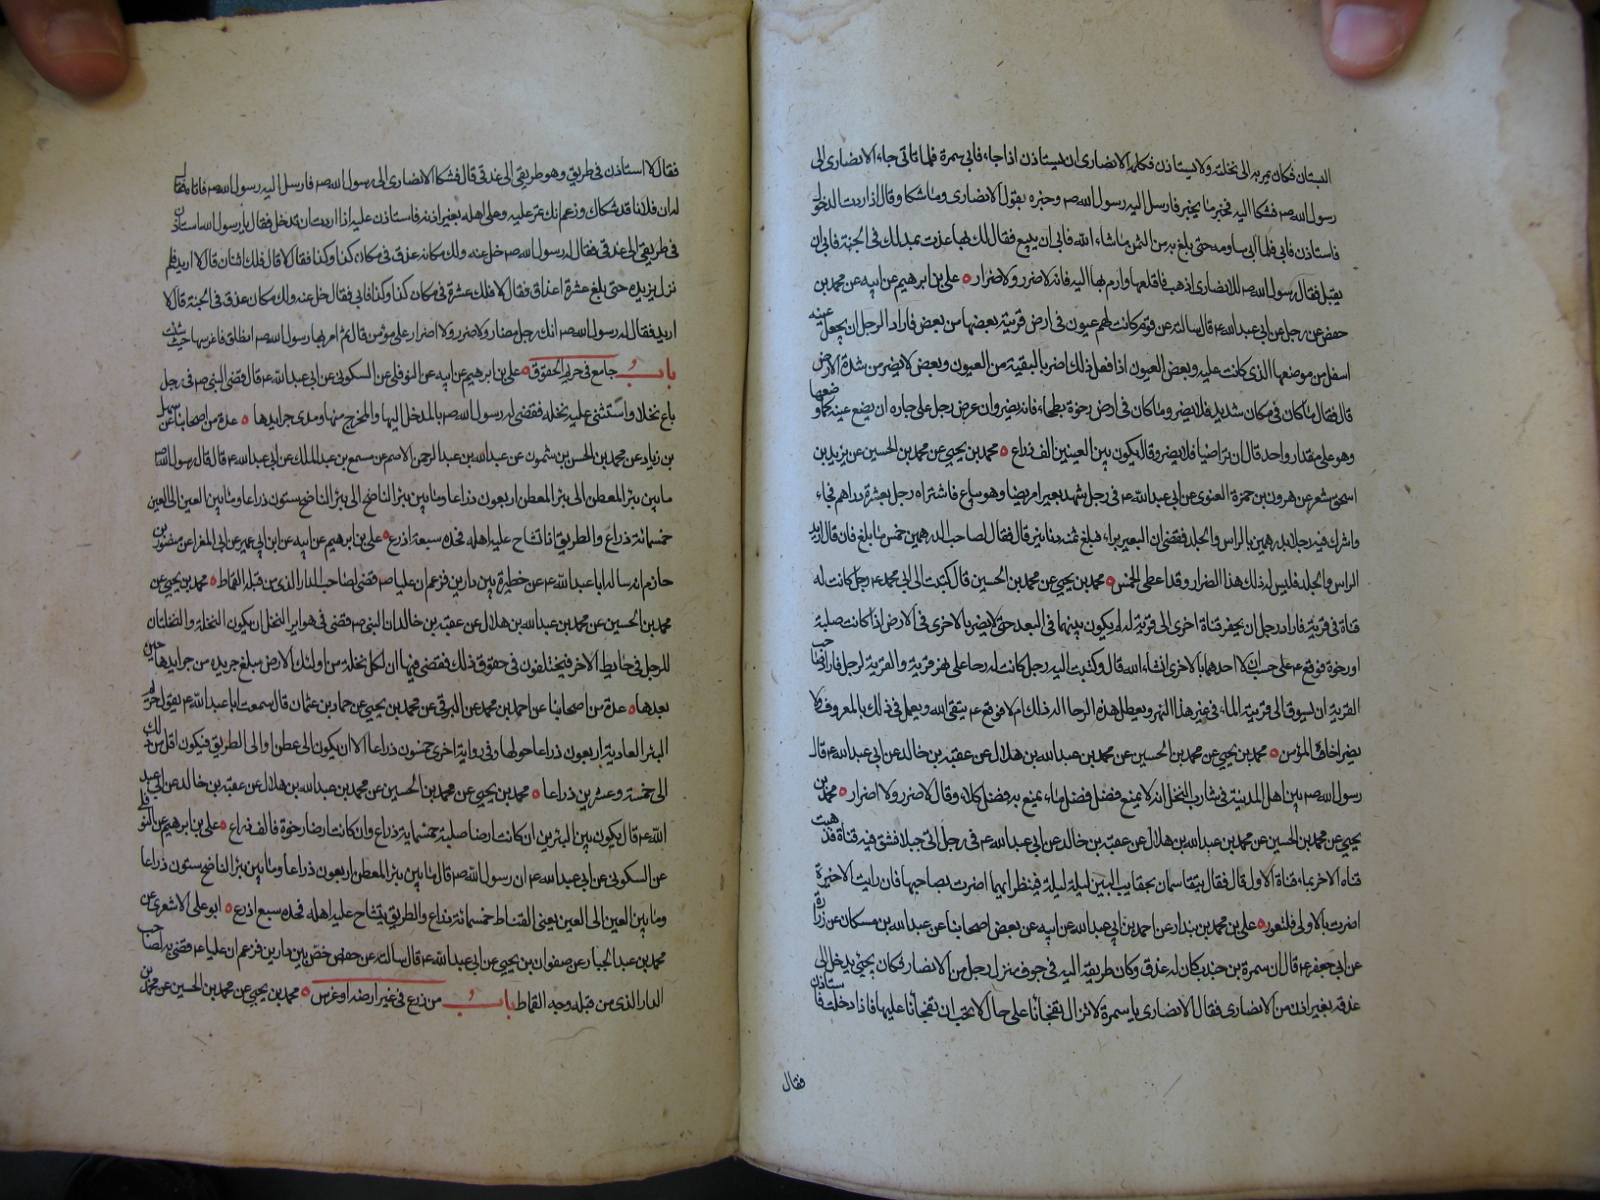 البستان فكان يمر به الى نخلته ولا يستاذن فكلمه الانصارى ان يستاذن اذا جاء فابى سمرة فلما تاتى جاء الانصارى الى
رسول الله ص فشكا اليه فخبر ما بخبر فارسل اليه رسول الله ص وخبره بقول الانصارى وما شكا وقال اذا اردت الدخول
فاستاذن فابى فلما ابى ساومه حتى بلغ به من الثمن ما شاء الله فابى ان يبيع فقال لك بها عذق يمد لك فى الجنة فابى ان
يقبل فقال رسول الله ص للانصارى اذهب فاقلعها وارم بها اليه فانه لا ضرر ولا ضرار ه على بن ابرهيم عن ابيه عن محمد بن
حفص عن رجل عن ابى عبد الله ع قال سالته عن قوم كانت لهم عيون فى ارض قريبة بعضها من بعض فاراد الرجل ان يجعل عينه
اسفل من موضعها الذى كانت عليه وبعض العيون اذا فعل ذلك اضر بالبقية من العيون وبعض لا يضر من شدة الارض
قال فقال ما كان فى مكان شديد فلا يضر وما كان فى ارض رخوة بطحاء فانه يضر وان عرض رجل على جاره ان يضع عينه كما وضعها
وهو على مقدار واحد قال ان تراضيا فلا يضر وقال يكون بين العينين الف ذراع ه محمد بن يحيى عن محمد بن الحسين عن يزيد بن
اسحق شعر عن هرون بن حمزة الغنوى عن ابى عبد الله ع فى رجل شهد بعيرا مريضا وهو يباع فاشتراه رجل بعشرة دراهم فجاء
واشرك فيه رجلا بدرهمين بالراس والجلد فقضى ان البعير برا فبلغ ثمنه دنانير قال فقال لصاحب الدرهمين خمس ما بلغ فان قال اريد
الراس والجلد فليس له ذلك هذا الضرار وقد اعطى الخمس ه محمد بن يحيى عن محمد بن الحسين قال كتبت الى ابى محمد ع رجل كانت له
قناة فى قرية فاراد رجل ان يحفر قناة اخرى الى قرية له كم يكون بينهما فى البعد حتى لا يضر بالاخرى فى الارض اذا كانت صلبة
او رخوة فوقع ع على حسب ان لا احدهما بالاخرى انشاء الله قال وكتبت اليه رجل كانت له رحا على نهر قرية والقرية لرجل فاراد صاحب
القرية ان يسوق الى قريته الماء فى غير هذا النهر ويعطل هذه الرحا اله ذلك ام لا فوقع ع يتقى الله ويعمل فى ذلك بالمعروف ولا
يضر اخاه المؤمن ه محمد بن يحيى عن محمد بن الحسين عن محمد بن عبد الله بن هلال عن عقبة بن خالد عن ابى عبد الله ع قال
رسول الله ص بين اهل المدينة فى شارب النخل انه لا يمنع فضل ماء يمنع به فضل كلاء وقال لا ضرر ولا اضرار ه محمد بن
يحيى عن محمد بن الحسين عن محمد بن عبد الله بن هلال عن عقبة بن خالد عن ابى عبد الله ع فى رجل اتى جبلا فشق فيه قناة فذهبت
قناة الاخر بماء قناة الاول قال فقال يتقاسمان بحقايب البير ليلة ليلة فينظر ايهما اضرت بصاحبها فان رايت الاخيرة
اضرت بالاولى فلتعور ه على بن محمد بن بندار عن احمد بن ابى عبد الله عن ابيه عن بعض اصحابنا عن عبد الله بن مسكان عن زرارة
عن ابى جعفر ع قال ان سمرة بن جندب كان له عذق وكان طريقه اليه فى جوف منزل رجل من الانصار فكان يجئ يدخل الى
عذقه بغير اذن من الانصارى فقال الانصارى يا سمرة لا تزال تفجانا على حال لا نحب ان تفجانا عليها فاذا دخلت فاستاذن
فقال
فقال لا استاذن فى طريق وهو طريقى الى عذقى قال فشكا الانصارى الى رسول الله ص فارسل اليه رسول الله ص فاتاه فقال
له ان فلانا قد شكاك وزعم انك تمر عليه وعلى اهله بغير اذنه فاستاذن عليه اذا اردت ان تدخل فقال يا رسول الله استاذن
فى طريقى الى عذقى فقال له رسول الله ص خل عنه ولك مكانه عذق فى مكان كذا وكذا فقال لا قال فلك اثنان قال لا اريد فلم
نزل يزيده حتى بلغ عشرة اعذاق فقال لا فلك عشرة فى مكان كذا وكذا فابى فقال خل عنه ولك مكان عذق فى الجنة قال لا
اريد فقال له رسول الله ص انك رجل مضار ولا ضرر ولا اضرار على مؤمن قال ثم امر بها رسول الله ص انطلق فاغرسها حيث شئت
باب جامع فى حريم الحقوق ه على بن ابرهيم عن ابيه عن النوفلى عن السكونى عن ابى عبد الله ع قال قضى النبى ص فى رجل
باع نخلا واستثنى عليه نخله فقضى له رسول الله ص بالمدخل اليها والمخرج منها ومدى جرايدها ه عدة من اصحابنا عن سهل
بن زياد عن محمد بن الحسن بن شمون عن عبد الله بن عبد الرحمن الاصم عن مسمع بن عبد الملك عن ابى عبد الله ع قال قال رسول الله ص
ما بين بئر المعطن الى بئر المعطن اربعون ذراعا وما بين بئر الناضح الى بئر الناضح ستون ذراعا وما بين العين الى العين
خمسمائة ذراع والطريق اذا تشاح عليه اهله فحده سبعة اذرع ه على بن ابرهيم عن ابيه عن ابن ابى عمير عن ابى المغرا عن منصور بن
حازم انه سال ابا عبد الله ع عن خطيرة بين دارين فزعم ان عليا ص قضى لصاحب الدار الذى من قبله القماط ه محمد بن يحيى عن
محمد بن الحسين عن محمد بن عبد الله بن هلال عن عقبة بن خالد ان النبى ص قضى فى هواير النخل ان يكون النخلة والنخلتان
للرجل فى حايط الاخر فيختلفون فى حقوق ذلك فقضى فيها ان لكل نخلة من اولئك الارض مبلغ جريده من جرايدها حين
بعدها ه عدة من اصحابنا عن احمد بن محمد عن البرقى عن محمد بن يحيى عن حماد بن عثمان قال سمعت ابا عبد الله ع يقول حريم
البئر العادية اربعون ذراعا حولها وفى رواية اخرى خمسون ذراعا الا ان يكون الى عطن او الى الطريق فيكون اقل من ذلك
الى خمسة وعشرين ذراعا ه محمد بن يحيى عن محمد بن الحسين عن محمد بن عبد الله بن هلال عن عقبة بن خالد عن ابى عبد
الله ع قال يكون بين البئرين ان كانت ارضا صلبة خمسماية ذراع وان كانت ارضا رخوة فالف ذراع ه على بن ابرهيم عن النوفلى
عن السكونى عن ابى عبد الله ع ان رسول الله ص قال ما بين بئر المعطن اربعون ذراعا وما بين بئر الناضح ستون ذراعا
وما بين العين الى العين يعنى القناط خمسمائة ذراع والطريق يتشاح عليه اهله فحده سبع اذرع ه ابو على الاشعرى عن
محمد بن عبد الجبار عن صفوان بن يحيى عن ابى عبد الله ع قال سالته عن حفص خص بين دارين فزعم ان عليا ع قضى به لصاحب
الدار الذى من قبله وجه القماط باب من زرع فى غير ارضه او غرس ه محمد بن يحيى عن محمد بن الحسين عن محمد بن